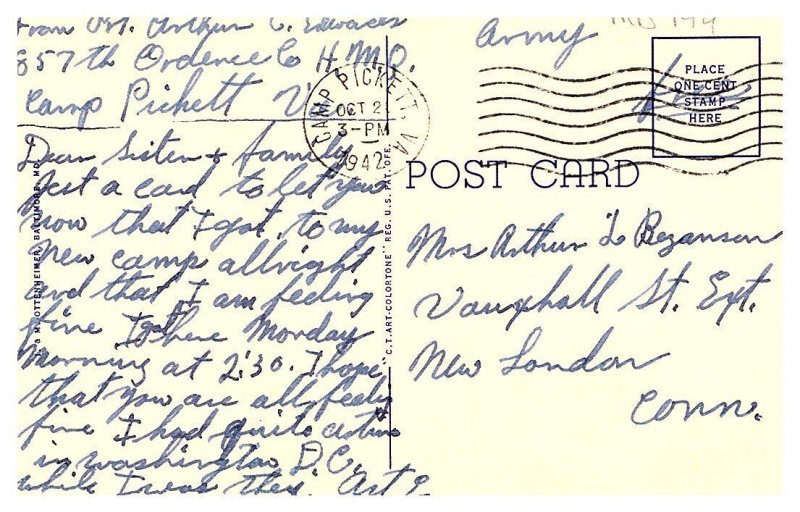 From Pvt. Arthur C. Edwards
857th Ordence Co H.M.Q.
Camp Pickett Va
Dear Sister + family
Just a card to let you
now that I got to my
New camp allright
and that I am feeling
fine I got here Monday
Morning at 2:30. I hope
that you are all feeling
fine I had quite a time
in washington D.C.
while I was they. Art E
I & M OTTENHEIMER, BALTIMORE, MD.
"C.T. ART-COLORTONE" REG. U.S. PAT. OFF.
CAMP PICKETT, VA
OCT 2
3-PM
1942
Army
Free
PLACE
ONE CENT
STAMP
HERE
POST CARD
Mrs Arthur L Bezanson
Vauxhall St. Ext.
New London
Conn.